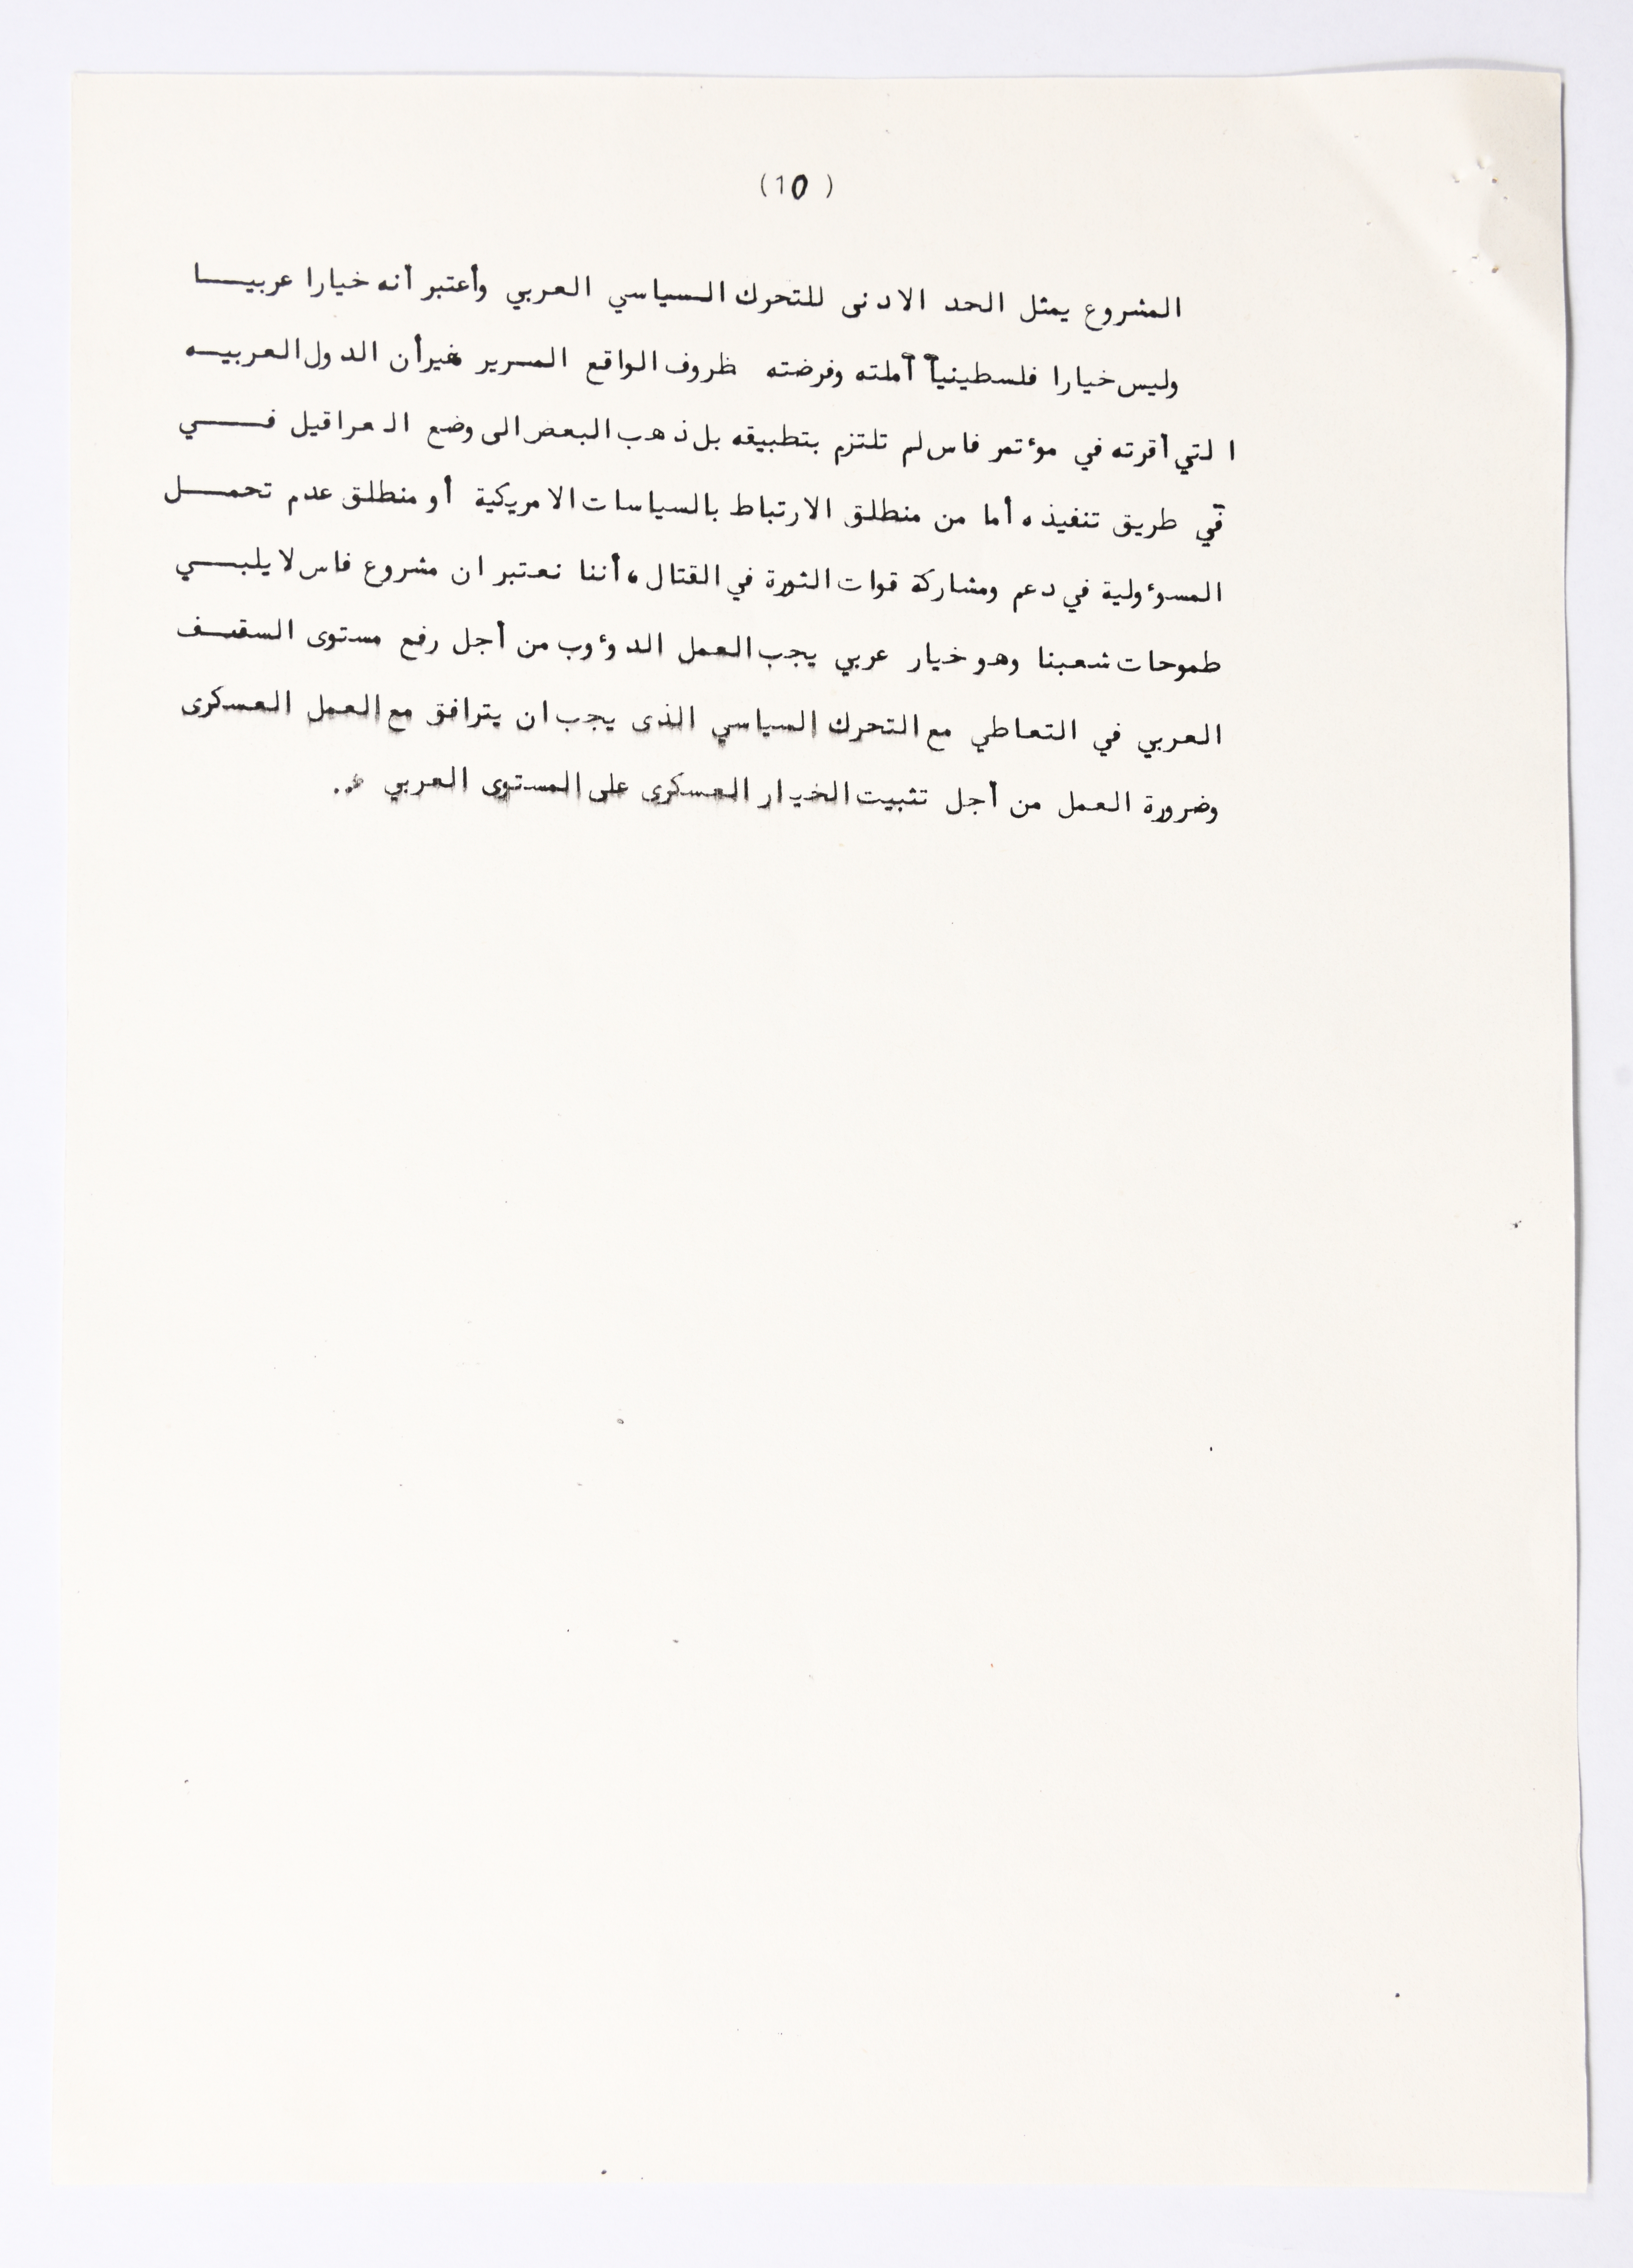 (10)
المشروع يمثل الحد الادنى للتحرك السياسي العربي وأعتبر أنه خيارا عربيـــا
وليس خيارا فلسطينيأ أملته وفرضته ظروف الواقع المرير غيرأن الدول العربيــه
التي أقرته في موءتمر فاس لم تلتزم بتطبيقه بل ذهب البعض الى وضع العراقيل فـــي
في طريق تنفيذه أما من منطلق الارتباط بالسياسات الامريكية أو منطلق عدم تحمــل
المسوءولية في دعم ومشاركة قوات الثورة في القتال، أننا نعتبر ان مشروع فاس لا يلبـــي
طموحات شعبنا وهو خيار عربي يجب العمل الدوءوب من أجل رفع مستوى السقـف
العربي في التعاطي مع التحرك السياسي الذى يجب ان يترافق مع العمل العسكرى
وضرورة العمل من أجل تثبيت الخيار العسكرى على المستوى العربي ..